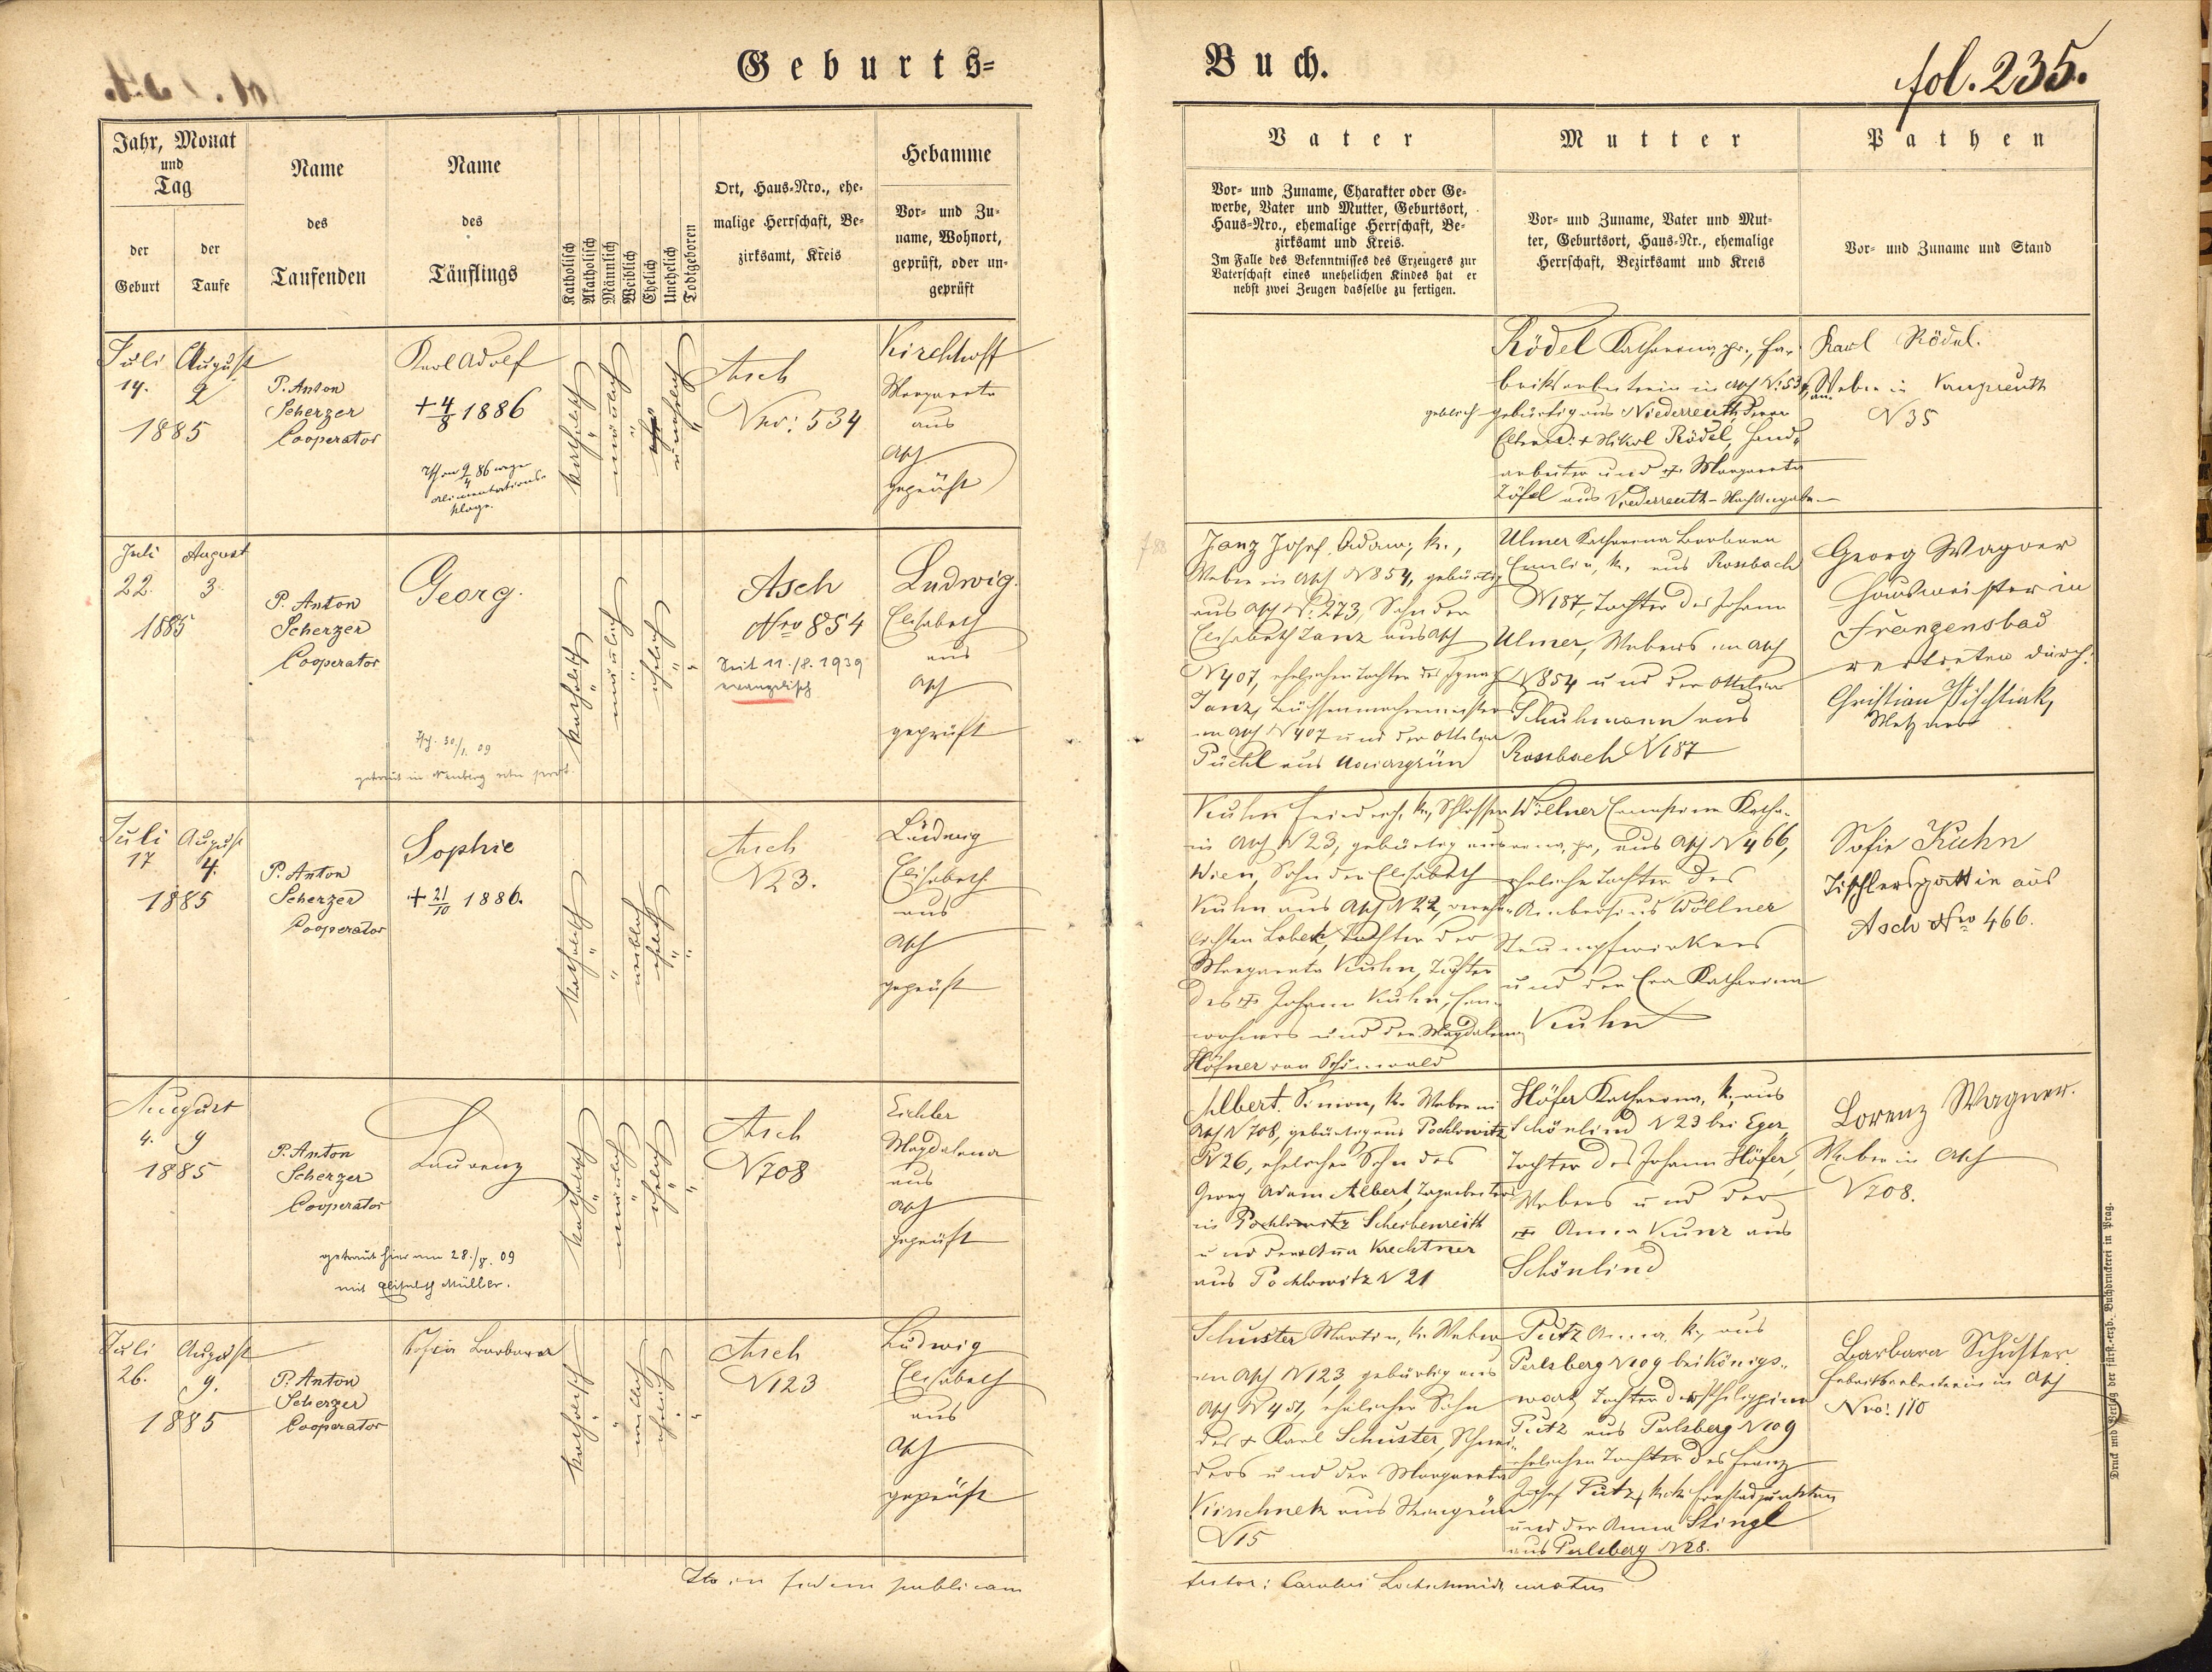 Geburts=
Buch.
fol. 235.
Jahr, Monat
und
Tag
der
Geburt
der
Taufe
Name
des
Taufenden
Name
des
Täuflings
Katholisch
Akatholisch
Männlich
Weiblich
Ehelich
Unehelich
Todtgeboren
Ort, Haus-Nro., ehe-
malige Herrschaft, Be-
zirksamt, Kreis
Hebamme
Vor- und Zu-
name, Wohnort,
geprüft, oder un-
geprüft
Vater
Vor- und Zuname, Charakter oder Ge-
werbe, Vater und Mutter, Geburtsort,
Haus-Nro., ehemalige Herrschaft, Be-
zirksamt und Kreis.
Im Falle des Bekenntnisses des Erzeugers zur
Vaterschaft eines unehelichen Kindes hat er
nebst zwei Zeugen dasselbe zu fertigen.
Mutter
Vor- und Zuname, Vater und Mut-
ter, Geburtsort, Haus-Nr., ehemalige
Herrschaft, Bezirksamt und Kreis
Pathen
Vor- und Zuname und Stand
Juli August
14. 2
1885
P. Anton
Scherzer
Cooperator
Karl Adolf
+ 4/8 1886
alimentations-
klage.
katholisch
männlich
unehelich
Asch
Nro: 534
Kirchhoff
Margareta
aus
Asch
geprüft
Rödel Katharina, pr., Fa-
brikarbeiterin in Asch N. 534,
angeblich gebürtig aus Niederreuth, deren
Eltern: + Nikol Rödel, Hand-
arbeiter und + Margareta
Zöfel aus Niederreuth - Nach Angabe
Karl Rödel.
Weber in
N 35
Juli August
22. 3.
1885
P. Anton
Scherzer
Cooperator
Georg.
30/1. 09
katholisch
männlich
ehelich
Asch
Nro 854
Seit 11./8. 1939
evangelisch
Ludwig
Elisabeth
aus
Asch
geprüft
Janz Josef Adam, k.,
Weber in Asch N 854, gebürtig
aus Asch N. 273, Sohn der
Elisabeth Janz aus Asch
N 407, ehelichen Tochter des Ignaz
Janz,
in Asch N 407 und der Ottilia
Püchl aus
Ulmer Katharina Barbara
Emilie, k., aus Rossbach
N 187, Tochter des Johann
Ulmer, Webers in Asch
N 854 und der Ottilia
Schuhmann aus
Rossbach N 187
Georg Wagner
Hausmeister in
Franzensbad
vertreten durch:
Christian Pischtiak,
Metzner
Juli August
17 4.
1885
P. Anton
Scherzer
Cooperator
Sophie
+ 21/10 1886.
katholisch
weiblich
ehelich
Asch
N 23.
Ludwig
Elisabeth
aus
Asch
geprüft
Kuhn Friedrich, k., Schlosser
in Asch N 23, gebürtig aus
Wien, Sohn der Elisabeth
Kuhn aus Asch N 22, vereh-
lichten Lobek, Tochter der
Margareta Kuhn, Tochter
des + Johann Kuhn, Ein-
wohners und der Magdalena
Höfner von Schönwald
Wöllner Ernestine Katha-
rina, pr., aus Asch N 466,
eheliche Tochter des
Ambrosius Wöllner
Strumpfwirkers
und der Eva Katharina
Kuhn
Sofie Kuhn
Tischlersgattin aus
Asch Nro 466.
August
4. 9
1885
P. Anton
Scherzer
Cooperator
Laurenz
getraut hier am 28./8. 09
mit Elisabeth Müller.
katholisch
männlich
ehelich
Asch
N 708
Eichler
Magdalena
aus
Asch
geprüft
Albert Simon, k. Weber in
Asch N 708, gebürtig aus Pochlowitz
N 26, ehelicher Sohn des
Georg Adam Albert, Tagarbeiters
in Pochlowitz Scheibenreith
und der Anna Krechtner
aus Pochlowitz N 21
Höfer Katharina, k., aus
Schönlind N 23 bei Eger,
Tochter des Johann Höfer,
Webers und der
+ Anna Kunz aus
Schönlind
Lorenz Wagner.
Weber in Asch
N 708.
Juli August
26. 9.
1885
P. Anton
Scherzer
Cooperator
Sofia Barbara
katholisch
weiblich
ehelich
Asch
N 123
Ludwig
Elisabeth
aus
Asch
geprüft
Schuster Martin, k. Weber
in Asch N 123, gebürtig aus
Asch N 451, ehelicher Sohn
des + Karl Schuster, Schnei-
ders und der Margareta
Kirschnek aus Steingrün
N 15
Putz Anna, k., aus
Perlsberg N 109 bei Königs-
wart, Tochter der Philippine
Putz aus Perlsberg N 109
ehelichen Tochter des Franz
Josef Putz, k. k. Forstadjunkten
und der Anna Stingl
aus Perlsberg N 28.
Barbara Schuster
Fabriksarbeiterin in Asch
Nro: 110
Ita in fidem publicam
testor: Carolus Lochschmidt curatus
Druck und Verlag der fürst.-erzb. Buchdruckerei in Prag.